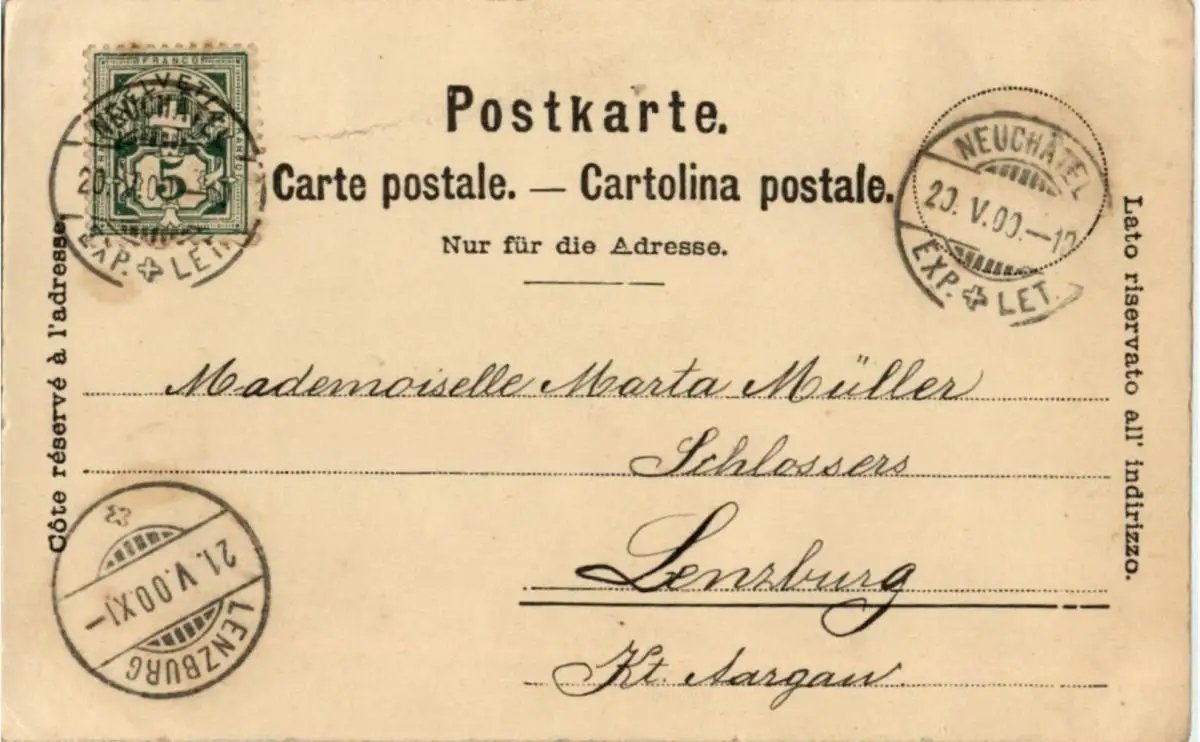 FRANCO
HELVETIA
5
NEUCHÂTEL
EXP. LET.
Postkarte.
Carte postale. — Cartolina postale.
Nur für die Adresse.
NEUCHÂTEL
20. V. 00.–12
EXP. LET.
Côte réservé à l'adresse.
Lato riservato all' indirizzo.
Mademoiselle Marta Müller
Schlossers
Lenzburg
Kt. Aargau.
21. V. 00 XI–
LENZBURG